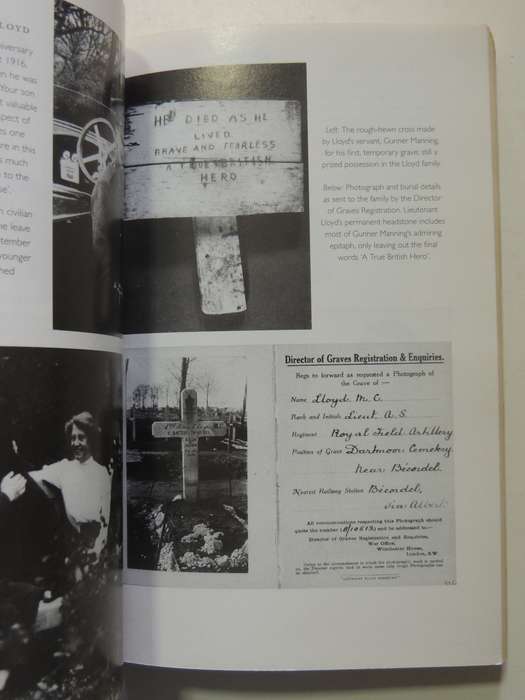 LOYD
iversary
1916,
n he was
Your son
t valuable
spect of
es one
re in this
s much
to the
se'.
n civilian
ne leave
tember
younger
ned
HE DIED AS HE
LIVED
BRAVE AND FEARLESS
A TRUE BRITISH
HERO
Left: The rough-hewn cross made
by Lloyd's servant, Gunner Manning,
for his first, temporary grave, still a
prized possession in the Lloyd family.
Below: Photograph and burial details
as sent to the family by the Director
of Graves Registration. Lieutenant
Lloyd's permanent headstone includes
most of Gunner Manning's admiring
epitaph, only leaving out the final
words 'A True British Hero'.
Director of Graves Registration & Enquiries.
Begs to forward as requested a Photograph of
the Grave of :—
Name Lloyd. M. C.
Rank and Initials Lieut. A. S.
Regiment Royal Field Artillery
Position of Grave Dartmoor Cemetery,
Near Bécordel.
Nearest Railway Station Bécordel,
All communications respecting this Photograph should
quote the number and be addressed to :—
Director of Graves Registration and Enquiries,
War Office,
Winchester House,
London, S.W.